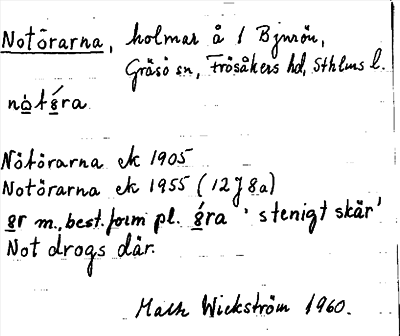 Notörarna, holmar å 1 Björnön,
Gräsö sn, Frösåkers hd, Sthlms l.
nòtǿra
Nötörarna ek 1905
Notörarna ek 1955 (12J8a)
gr m., best. form pl. ǿra 'stenigt skär'
Not drogs där.
Math Wickström 1960.